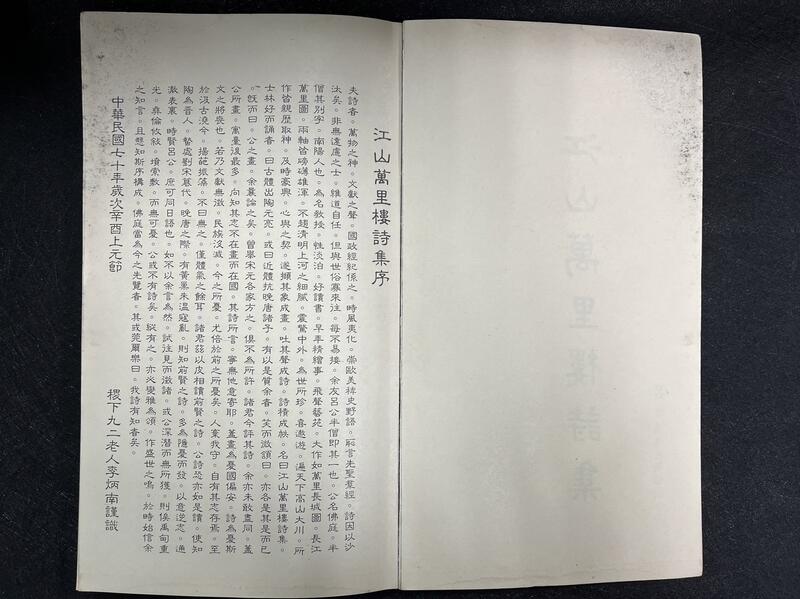 江山萬里樓詩集序
夫詩者。萬物之神。文獻之聲。國政經紀係之。時風夷化。崇歐美稗史野語。恥言先聖羣經。詩因以沙
汰矣。非無遠慮之士。維道自任。但與世俗寡來往。每不易接。余友呂公半僧即其一也。公名佛庭。半
僧其別字。南陽人也。為名教授。性淡泊。好讀書。早年精繪事。飛聲藝苑。大作如萬里長城圖。長江
萬里圖。兩軸皆磅礴雄渾。不趨清明上河之細膩。震驚中外。為世所珍。喜遨遊。遍天下高山大川。所
作皆親歷取神。及時豪興。心與之契。遂擷其象成畫。吐其聲成詩。詩積成帙。名曰江山萬里樓詩集。
士林好而誦者。曰古體出陶元亮。或曰近體抗晚唐諸子。有以是質余者。笑而漵頷曰。亦各是其是而已
。旣而曰。公之畫。余曩論之矣。曾舉宋元各家方之。俱不為所許。諸君今評其詩。余亦未敢盡同。蓋
公所畫。寓臺後最多。向知其志不在畫而在國。其詩所言。寧無他意寄耶。蓋畫為憂國偏安。詩為憂斯
文之將喪也。若乃文獻無徵。民族沒滅。今之所憂。尤倍於前之所憂矣。人棄我守。自有其志存焉。至
於汲古澆今。揚葩振藻。不曰無之。僅體氣之餘耳。諸君茲以皮相讀前賢之詩。公詩恐亦如是讀。使知
陶為晉人。蟄處劉宋篡代。晚唐之際。有黃巢朱溫寇亂。則知前賢之詩。多為隱憂而發。以意逆志。通
澈表裏。時賢呂公。庶可同日語也。如不以余言為然。試往見而徵諸。或公深潛而無所獲。則俟禹甸重
光。彝倫攸敘。墳索敷。而無可憂。公或不有詩矣。縱有之。亦必變雅為頌。作盛世之鳴。於時始信余
之知言。且想知斯序構成。佛庭當為今之先覽者。其或莞爾樂曰。我詩有知者矣。
中華民國七十年歲次辛酉上元節
稷下九二老人李炳南謹識
江山萬里樓詩集